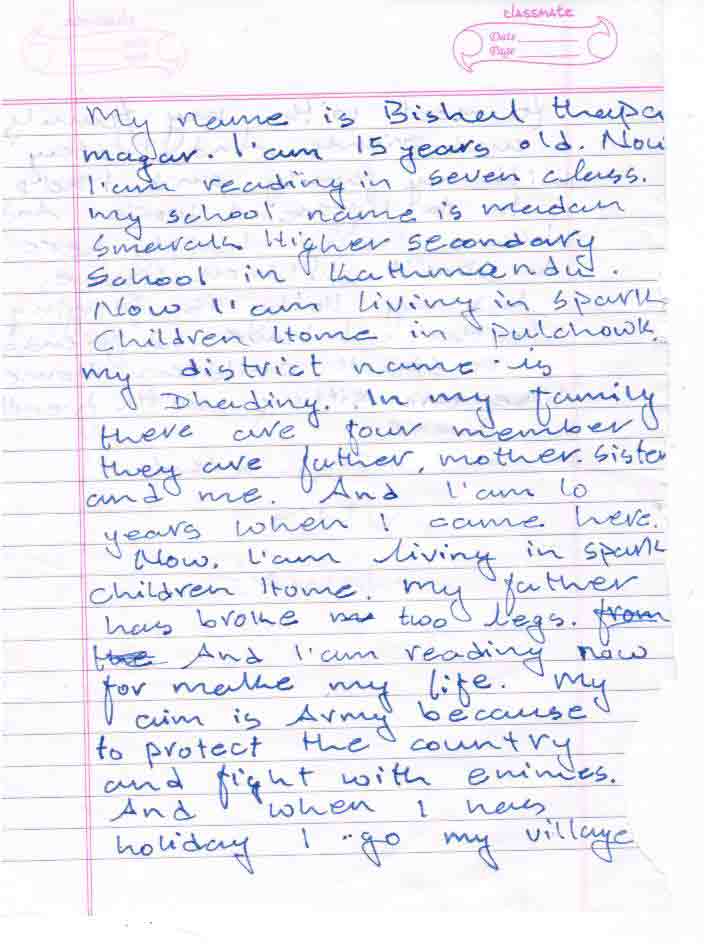 classmate
Date
Page
My name is Bishal thapa
magar. I'am 15 years old. Now
I'am reading in seven class.
my school name is madan
Smarak Higher secondary
School in Kathmandu.
Now I'am living in spark
Children Home in pulchowk.
my district name is
Dhading. In my family
there are four member
they are father, mother. sister
and me. And I'am 10
years when I came here.
Now, I'am living in spark
children Home. my father
has broke two legs. from
the And I'am reading now
for make my life. My
aim is Army because
to protect the country
and fight with enimes.
And when I has
holiday I go my village